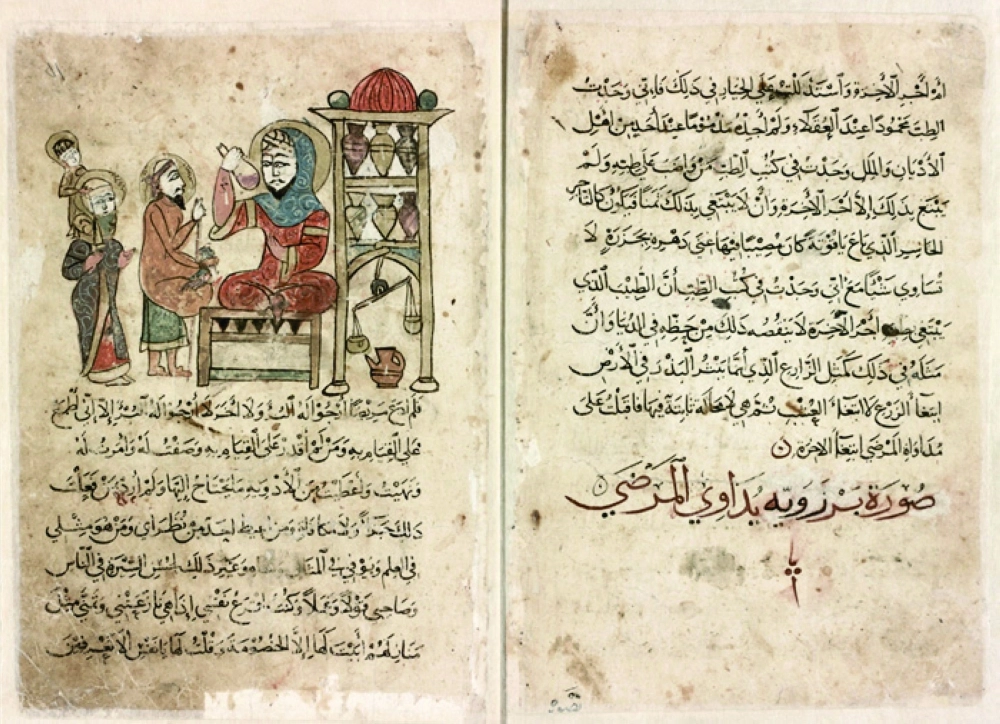 الآخرة واستدللت على الخيار في ذلك فاني وجدت
الطب محمودا عند العقلاء ولم اجده مذموما عند احد من اهل
الأديان والملل وجدت في كتب الطب من واظب على طبه ولم
يبتغ بذلك إلا أجر الآخرة وأن لا يبتغي بذلك ثمنا فيكون كالتاجر
الخاسر الذي باع ياقوتة كان مصيبا بها غنى دهره بخرزة لا
تساوي شيئا مع اني وجدت في كتب الطب أن الطبيب الذي
يبتغي أجر الآخرة لا ينقصه ذلك من حظه في الدنيا وأن
مثله في ذلك كمثل الزارع الذي انما البذر في الأرض
ابتغاء الزرع لا ابتغاء العشب ثم هي لا محالة نابتة فيها فاقبلت على
مداواة المرضى ابتغاء الاخرة
صورة برزويه يداوي المرضي
فلم ادع مريضا أرجو له البرء ولا آخر لا أرجو له البرء إلا اني اطمع
على القيام به ومن لم أقدر على القيام به وصفت له وأمرت له
ونهيت وأعطيت من الأدوية ما يحتاج إليها ولم أرد ممن فعلت
ذلك جزاء ولا مكافاة ولم اغبط احد من نظراي ومن هو مثلي
في العلم وفوقي في المال وغير ذلك لحسن السيرة في الناس
قولا وعملا وكنت اقرع نفسي إذا هي نازعتني وتمنت مثل
منازلهم أبيت لها إلا الخصومة وقلت لها يا نفس ألا تعرفين